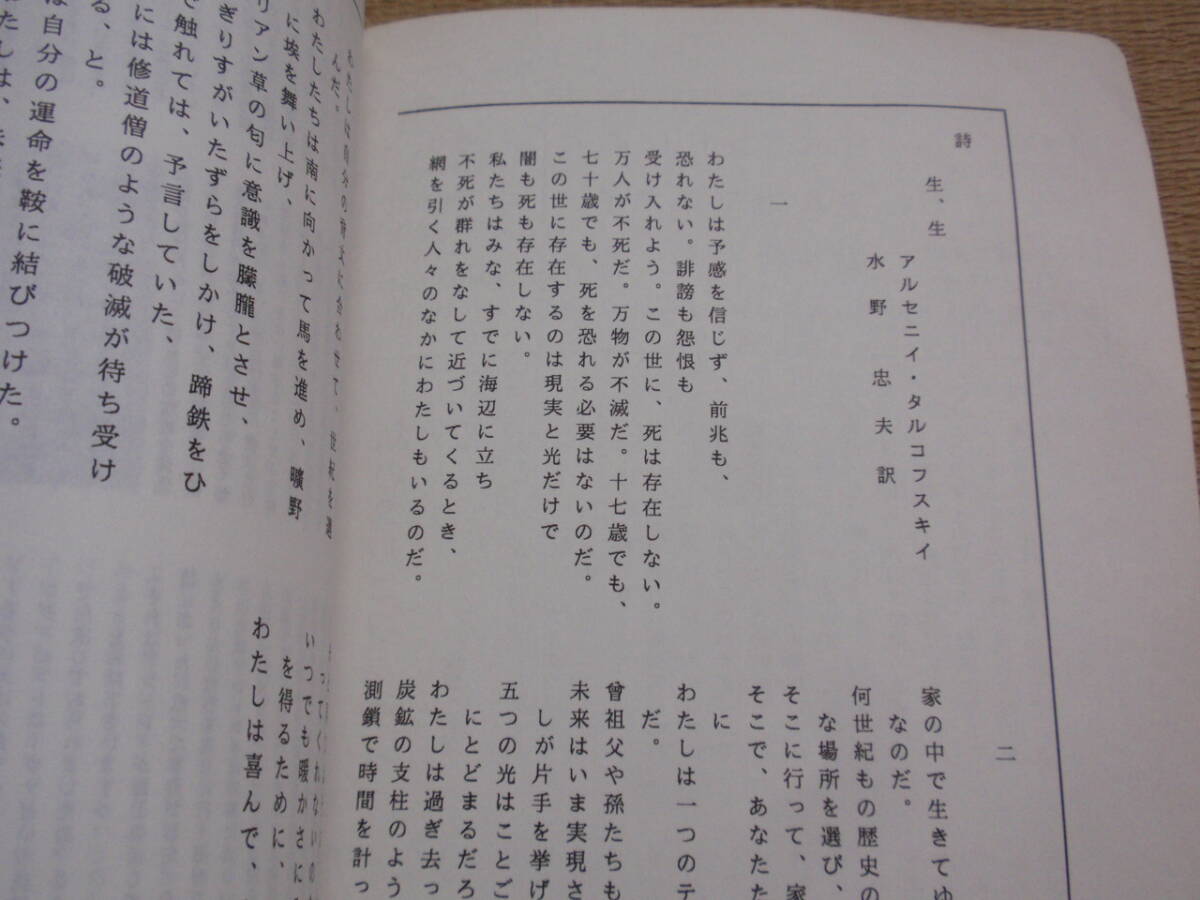 詩
生、生
アルセニイ・タルコフスキイ
水野忠夫訳
一
わたしは予感を信じず、前兆も、
恐れない。誹謗も怨恨も
受け入れよう。この世に、死は存在しない。
万人が不死だ。万物が不滅だ。十七歳でも、
七十歳でも、死を恐れる必要はないのだ。
この世に存在するのは現実と光だけで
闇も死も存在しない。
私たちはみな、すでに海辺に立ち
不死が群れをなして近づいてくるとき、
網を引く人々のなかにわたしもいるのだ。
二
家の中で生きてゆ
なのだ。
何世紀もの歴史の
な場所を選び、
そこに行って、家
そこで、あなたた
に
わたしは一つのテ
だ。
曾祖父や孫たちも
未来はいま実現さ
しが片手を挙げ
五つの光はことご
にとどまるだろ
わたしは過ぎ去っ
炭鉱の支柱のよう
測鎖で時間を計っ
んだ。
わたしたちは南に向かって馬を進め、曠野
に埃を舞い上げ、
リアン草の匂に意識を朦朧とさせ、
ぎりすがいたずらをしかけ、蹄鉄をひ
で触れては、予言していた、
には修道僧のような破滅が待ち受け
る、と。
は自分の運命を鞍に結びつけた。
ってくれないの
いつでも暖かさに
を得るために、
わたしは喜んで、